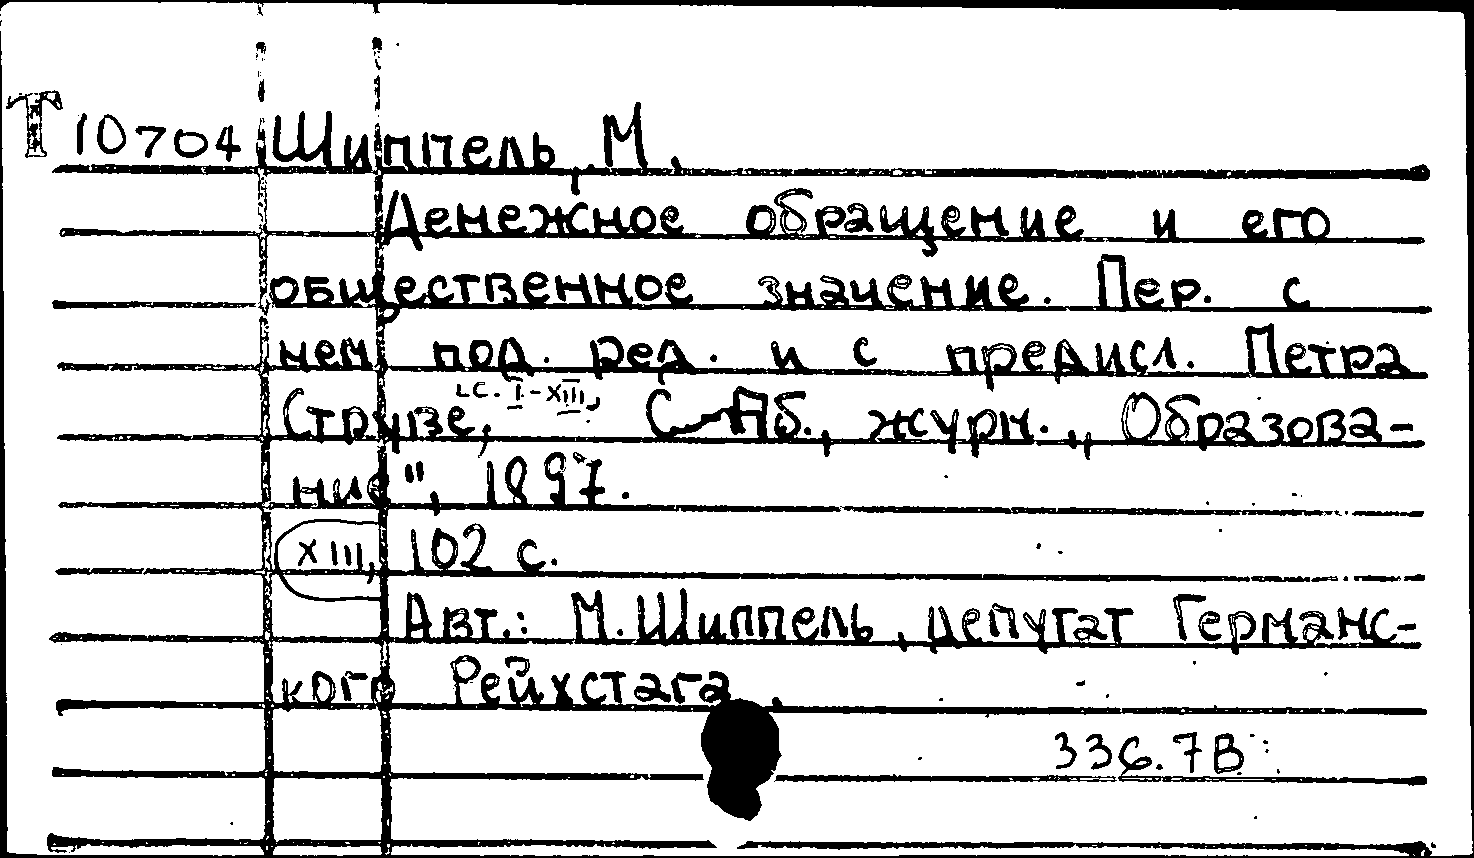 Т 10704 Шиппель, М.
Денежное обращение и его
общественное значение. Пер. с
нем под. ред. и с предисл. Петра
Струве, [с. I-XIII, С-Пб., журн. „Образова-
ние", 1897.
XIII, 102 с.
Авт.: М. Шиппель, депутат Германс-
кого Рейхстага.
336.7В